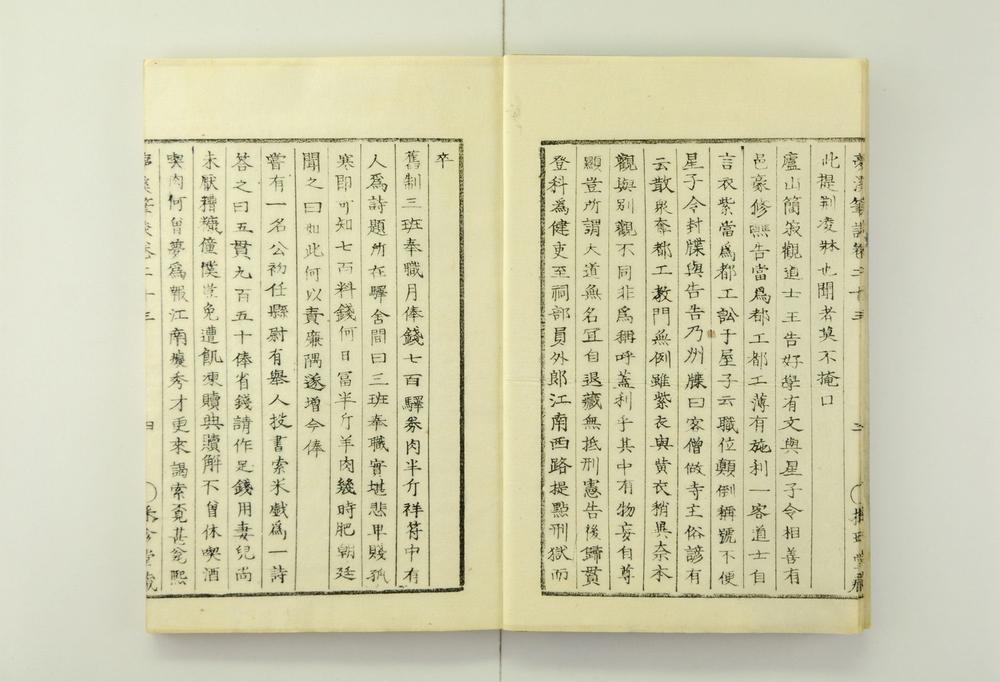 夢溪筆談卷二十三
此提刑凌牀也聞者莫不掩口
廬山簡寂觀道士王告好學有文與星子令相善有
邑豪修醮告當為都工都工薄有施利一客道士自
言衣紫當為都工訟于星子云職位顛倒稱號不便
星子令封牒與告告乃判牒曰客僧做寺主俗諺有
云散眾奪都工教門無例雖紫衣與黃衣稍異奈本
觀與別觀不同非為稱呼蓋利乎其中有物妄自尊
顯豈所謂大道無名宜自退藏無抵刑憲告後歸貫
登科為健吏至祠部員外郎江南西路提點刑獄而
卒
舊制三班奉職月俸錢七百驛券肉半斤祥符中有
人為詩題所在驛舍間曰三班奉職實堪悲卑賤孤
寒即可知七百料錢何日富半斤羊肉幾時肥朝廷
聞之曰如此何以責廉隅遂增今俸
嘗有一名公初任縣尉有舉人投書索米戲為一詩
答之曰五貫九百五十俸省錢請作足錢用妻兒尚
未厭糟糠僮僕豈免遭飢凍贖典贖解不曾休喫酒
喫肉何曾夢為報江南癡秀才更來謁索覓甚瓮熙
夢溪筆談卷二十三
四